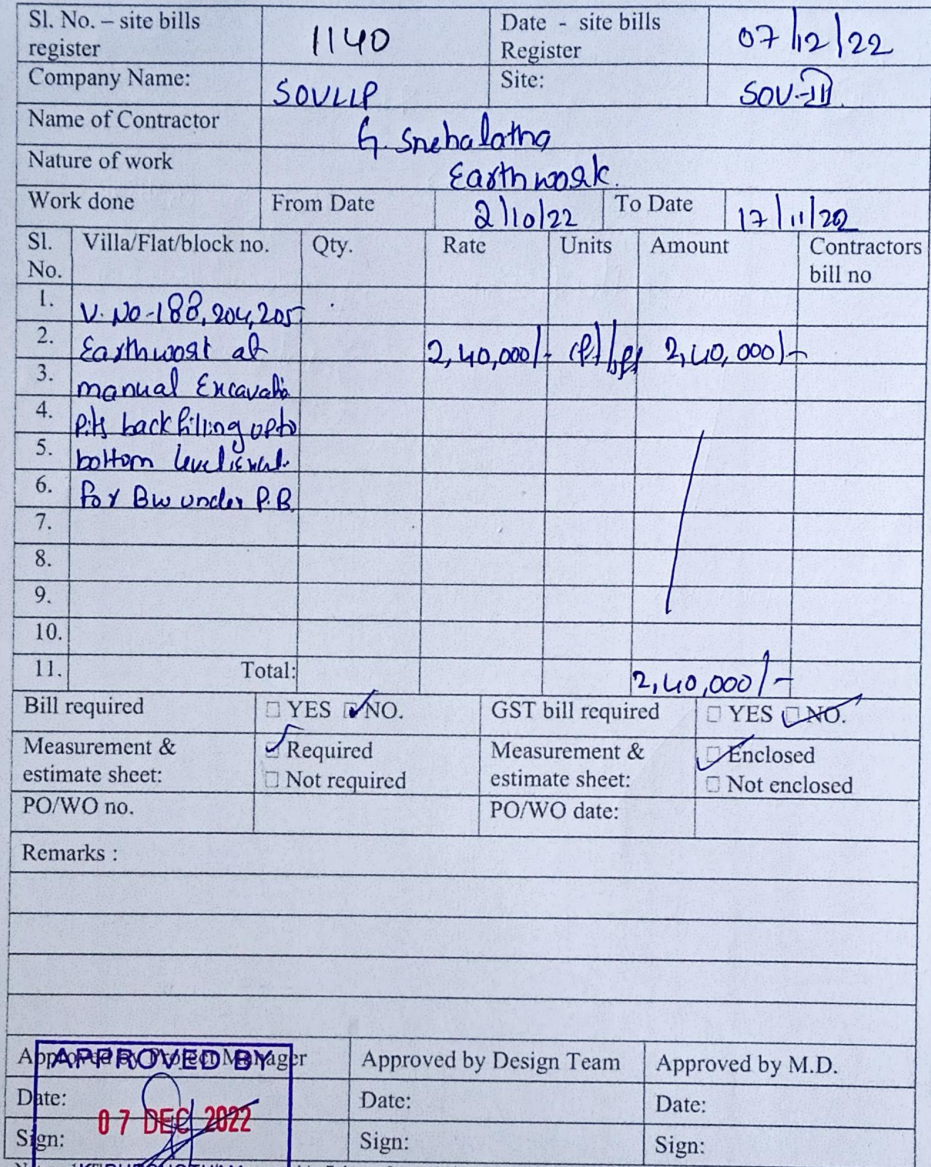 Sl. No. – site bills register 1140 Date - site bills Register 07/12/22
Company Name: SOVLLP Site: SOV-III
Name of Contractor G. Snehalatha
Nature of work Earthwork.
Work done From Date 2/10/22 To Date 17/11/22
Sl. No. Villa/Flat/block no. Qty. Rate Units Amount Contractors bill no
1. V. No-188,204,205
2. Earthwork at 2,40,000/- 2,40,000/-
3. manual Excavatio
4. Pits backfilling upto
5. bottom level
6. for BW under P.B.
7.
8.
9.
10.
11. Total: 2,40,000/-
Bill required YES NO. GST bill required YES NO.
Measurement & estimate sheet: Required Not required Measurement & estimate sheet: Enclosed Not enclosed
PO/WO no. PO/WO date:
Remarks :
Approved by Project Manager Approved by Design Team Approved by M.D.
APPROVED BY
Date: Date: Date:
07 DEC 2022
Sign: Sign: Sign: